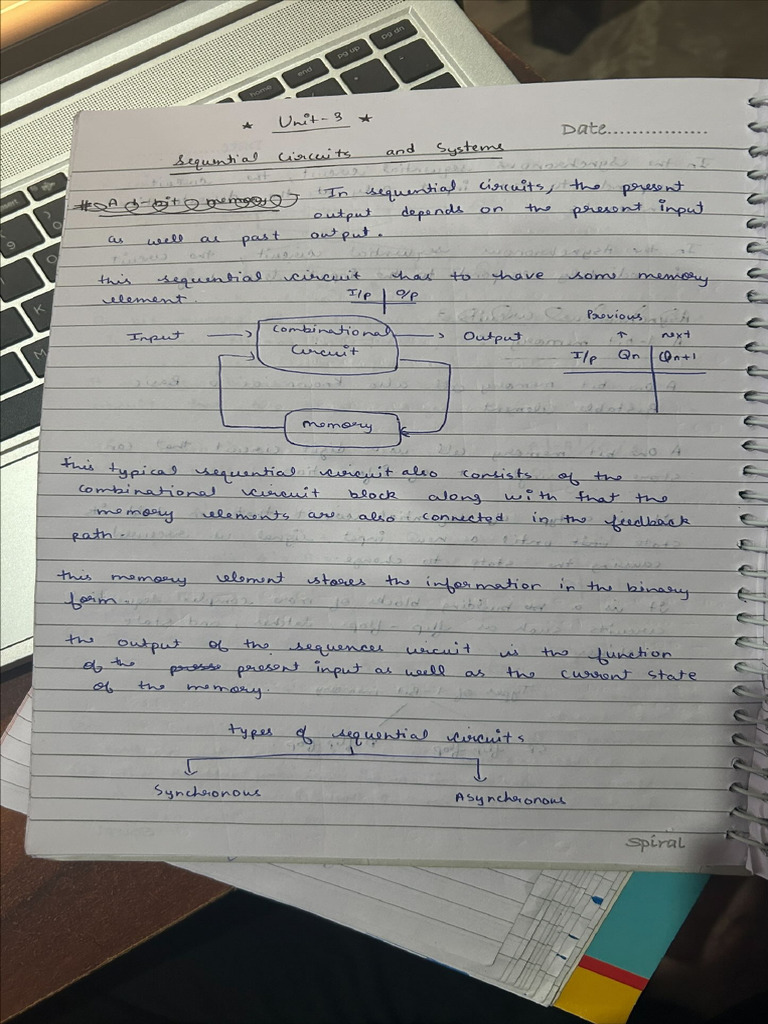 home
end
pg up
pg dn
★ Unit-3 ★
Date...............
Sequential Circuits and Systems
# A 1-bit memory
In sequential circuits, the present
output depends on the present input
as well as past output.
this sequential circuit has to have some memory
element.
I/p | O/p
Input → Combinational Circuit → Output
memory
Previous
↑ next
I/p Qn | Qn+1
this typical sequential circuit also consists of the
combinational circuit block along with that the
memory elements are also connected in the feedback
path.
this memory element stores the information in the binary
form.
the output of the sequences circuit is the function
of the present input as well as the current state
of the memory.
types of sequential circuits
Synchronous
Asynchronous
Spiral